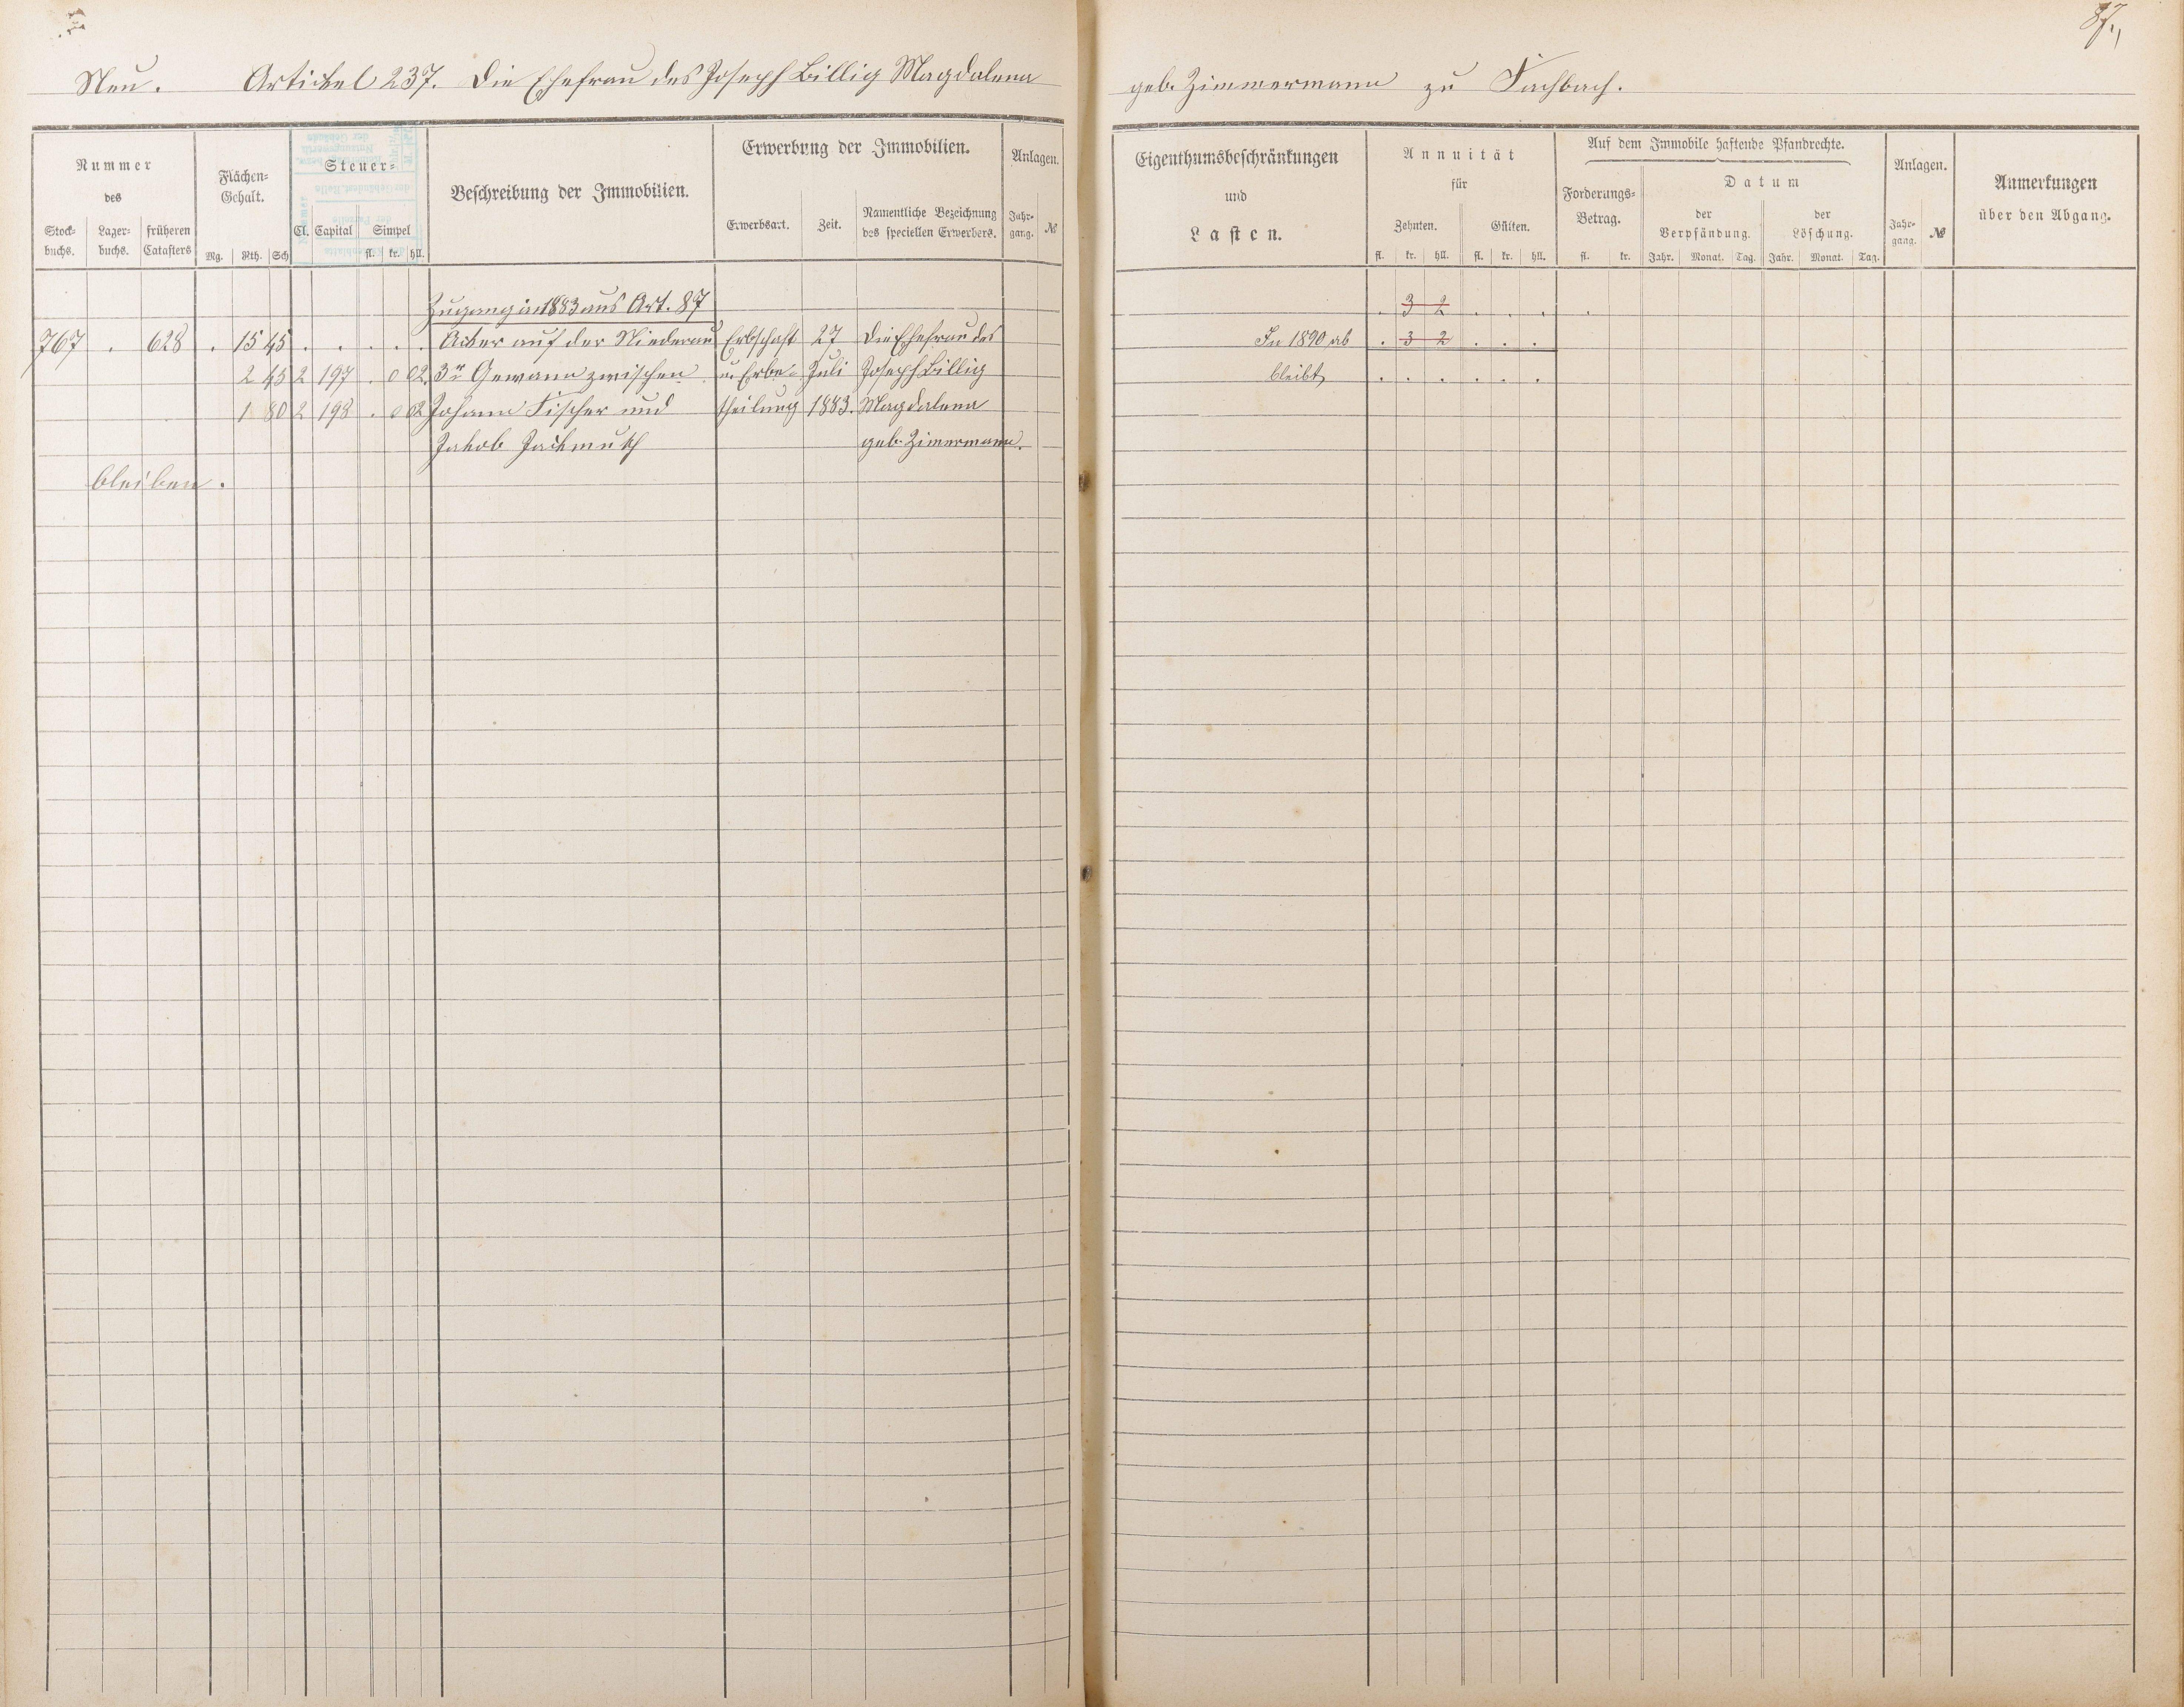 87.,
Neu. Artickel 237. Die Ehefrau des Joseph Billig Magdalena geb. Zimmermann zu Fachbach.
Nummer des
Stock-buchs. Lager-buchs. früheren Catasters
Flächen-Gehalt.
Mg. Rth. Sch
Steuer-
Cl. Capital Simpel
fl. kr. hll.
Beschreibung der Immobilien.
Erwerbung der Immobilien.
Erwerbsart. Zeit. Namentliche Bezeichnung des speciellen Erwerbers.
Anlagen.
Jahr-gang. №
Eigenthumsbeschränkungen
und
Lasten.
Annuität
für
Zehnten. Gülten.
fl. kr. hll. fl. kr. hll.
Auf dem Immobile haftende Pfandrechte.
Forderungs-Betrag.
fl. kr.
Datum
der Verpfändung. der Löschung.
Jahr. Monat. Tag. Jahr. Monat. Tag.
Anlagen.
Jahr-gang. №
Anmerkungen
über den Abgang.
Zugang in 1883 aus Art. 87 . 3 2 . . . .
767 . 628 . 15 45 . . . . . Acker auf der Niederau Erbschaft 27 Die Ehefrau des In 1890 ab . 3 2 . . .
2 45 2 197 . 0 02. 3r Gewann zwischen u. Erbe- Juli Joseph Billig bleibt . . . . . .
1 80 2 198 . 0 02 Johann Fischer und theilung 1883. Magdalena
Jakob geb. Zimermann.
bleiben.